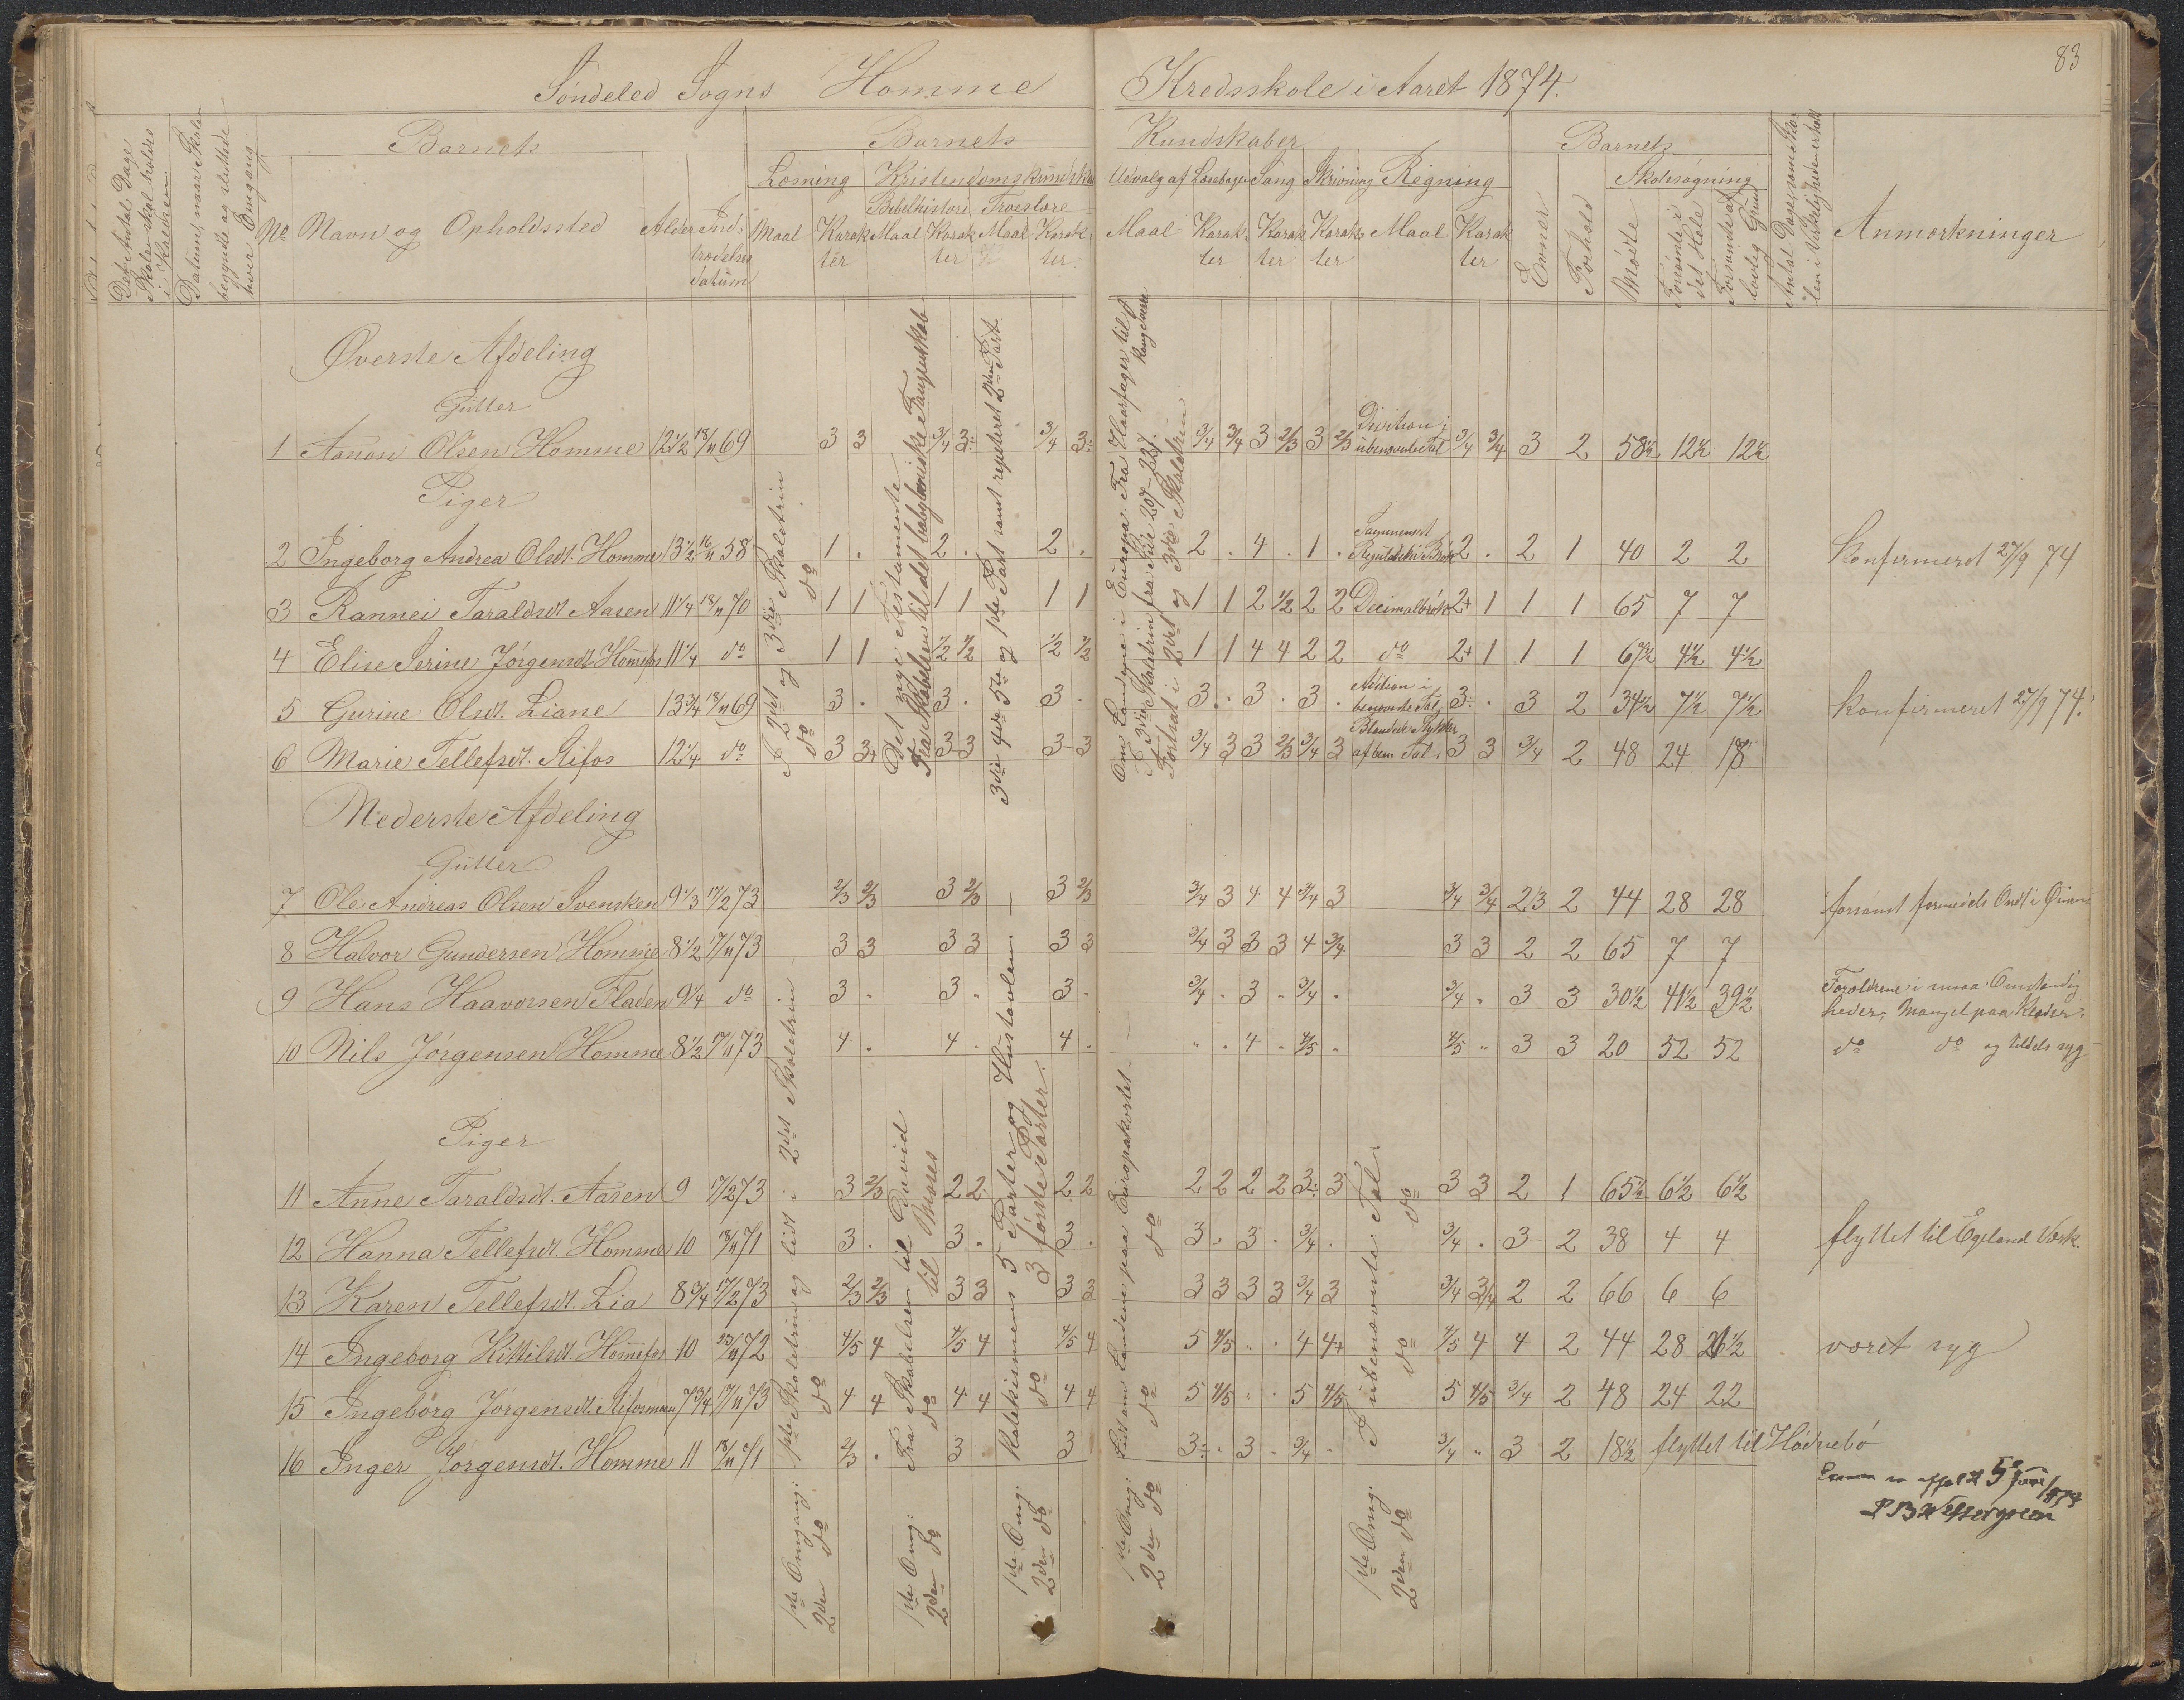 83
Søndeled Sogns Homme Kredsskole i Aaret 1874.
Det Antal Dage Skolen skal holdes i Kredsen.
Datum, naar Skolen begyndte og sluttede hver Omgang
Barnets
Barnets Kundskaber
Barnets
Læsning Kristendomskundskab Udvalg af Læsebogen Sang Skrivning Regning Skolesøgning
Bibelhistori Troeslære
No Navn og Opholdssted Alder Indtrædelses datum Maal Karakter Maal Karakter Maal Karakter Maal Karakter Karakter Karakter Maal Karakter Evner Forhold Mødte Forsømte i det Hele Forsømte af lovlig Grund Anmærkninger
Antal Dage, som Skolen i Virkeligheden er holdt
Øverste Afdeling
Gutter
1 Aanon Olsen Homme 12 1/2 18/11 69 3 3 3/4 3: 3/4 3: 3/4 3/4 3 2/3 3 2/3 Division i ubenævnte Tal 3/4 3/4 3 2 58 1/2 12 1/2 12 1/2
Piger
2 Ingeborg Andrea Olsdt. Homme 13 1/2 16/11 58 1 . 2 . 2 . 2 . 4 . 1 . Sammensat Reguladetri i Brøk 2 . 2 1 40 2 2 Konfirmeret 27/9 74
3 Rannei Taraldsdt Aasen 11 1/4 18/11 70 1 1 1 1 1 1 1 1 2 1/2 2 2 Decimalbrøk 2+ 1 1 1 65 7 7
4 Elise Serine Jørgensdt Homefos 11 1/4 do 1 1 1/2 1/2 1/2 1/2 1 1 4 4 2 2 do 2+ 1 1 1 67 1/2 4 1/2 4 1/2
5 Gurine Olsdt. Liane 13 3/4 18/11 69 3 . 3 . 3 . 3 . 3 . 3 . Adition i benævnte Tal 3: . 3 2 34 1/2 7 1/2 7 1/2 Konfirmeret 27/9 74.
6 Marie Tellefsdt. Stifos 12 1/4 do 3 3+ 3 3 3 3 3/4 3 3 2/3 3/4 3 Blandede Stykker af ben. Tal. 3 3 3/4 2 48 24 18
I 2det og 3die Skoletrin
do do
Det nye Testamente
Fra Skabelsen til det babyloniske Fangenskab
3die 4de 5te og 1ste Part samt repeteret 2den Part
Om Landene i Europa. Fra Haarfager til Kongevære
I 3die Skoletrin fra Side 207-227.
Fortsat i 2det og 3die Skoletrin
Nederste Afdeling
Gutter
7 Ole Andreas Olsen Svensken 9 1/3 17/2 73 2/3 2/3 3 2/3 3 2/3 3/4 3 4 4 3/4 3 3/4 3/4 2/3 2 44 28 28 forsømt formedels Ondt i Øinene
8 Halvor Gundersen Homme 8 1/2 17/11 73 3 3 3 3 3 3 3/4 3 3 3 4 3/4 3 3 2 2 65 7 7
9 Hans Haavorsen Fladen 9 1/4 do 3 . 3 . 3 . 3/4 . 3 . 3/4 . 3/4 . 3 3 30 1/2 41 1/2 39 1/2 Forældrene i smaa Omstændigheder, Mangel paa Klæder.
10 Nils Jørgensen Homme 8 1/2 17/11 73 4 . 4 . 4 . . . 4 . 4/5 . 4/5 " 3 3 20 52 52 do do og tildels syg
Piger
11 Anne Taraldsdt. Aasen 9 17/2 73 3 2/3 2 2 2 2 2 2 2 2 3: 3 3 3 2 1 65 1/2 6 1/2 6 1/2
12 Hanna Tellefsdt. Homme 10 18/11 71 3 . 3 . 3 . 3 . 3 . 3/4 . 3/4 . 3 2 38 4 4 flyttet til Egeland Værk.
13 Karen Tellefsdt. Lia 8 3/4 17/2 73 2/3 2/3 3 3 3 3 3 3 3 3 3/4 3 3/4 3/4 2 2 66 6 6
14 Ingeborg Kittilsdt. Homefos 10 23/11 72 4/5 4 4/5 4 4/5 4 5 4/5 . . 4 4+ 4/5 4 4 2 44 28 26 1/2 været syg
15 Ingeborg Jørgensdt. Stifosmoen 7 3/4 17/11 73 4 4 4 4 4 4 5 4/5 . . 5 4/5 5 4/5 3/4 2 48 24 22
16 Inger Jørgensdt. Homme 11 18/11 71 2/3 . 3 3 3: . 3 . 3/4 . 3/4 " 3 2 18 1/2 flyttet til Hødnebø
1ste Omgang: 1ste Skoletrin og lidt i 2det Skoletrin
2den do do
1ste Omg: Fra Skabelsen til David
2den do do til Moses
1ste Omg. Katekismens 5 Parter og Hustavlen.
2den do do 3 første Parter.
1ste Omg: Lidt om Landene paa Europakartet
2den do do do
1ste Omg. I ubenævnte Tal.
2den do do do
5 Juni 1874